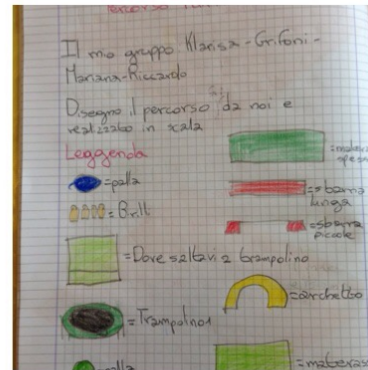 Il mio gruppo Klarisa-Grifoni-
Mariana-Riccardo
Disegno il percorso da noi e
realizzato in scala
Leggenda
=palla
=Birilli
=Dove saltavi a trampolino
=Trampolino1
=sbarra
lunga
=sbarra
piccole
=archetto